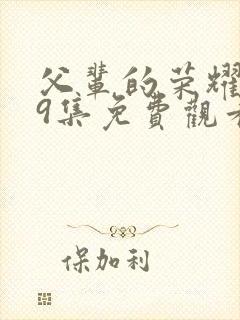 父輩的榮耀
9集免費觀看
保加利